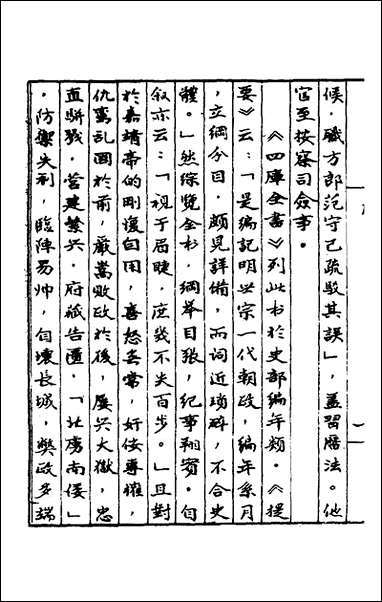 候，職方部范守己疏駁其誤」，盖習曆法。他
官至按察司僉事。
《四庫全書》列此书於史部編年類。《提
要》云：「是編記明世宗一代朝政，編年系月
，立綱分目，頗見詳備，而词近瑣碎，不合史
體。」然综覽全书，綱舉目張，纪事翔實。自
叙亦云：「视于眉睫，庶幾不失百步。」且對
於嘉靖帝的剛愎自用，喜怒无常，奸佞專權，
仇鸾乱國於前，嚴嵩败政於後，屡兴大獄，忠
直駢戮，营建繁兴，府藏告匮，「北虏南倭」
，防禦失利，臨陣易帅，自壞長城，樊政多端